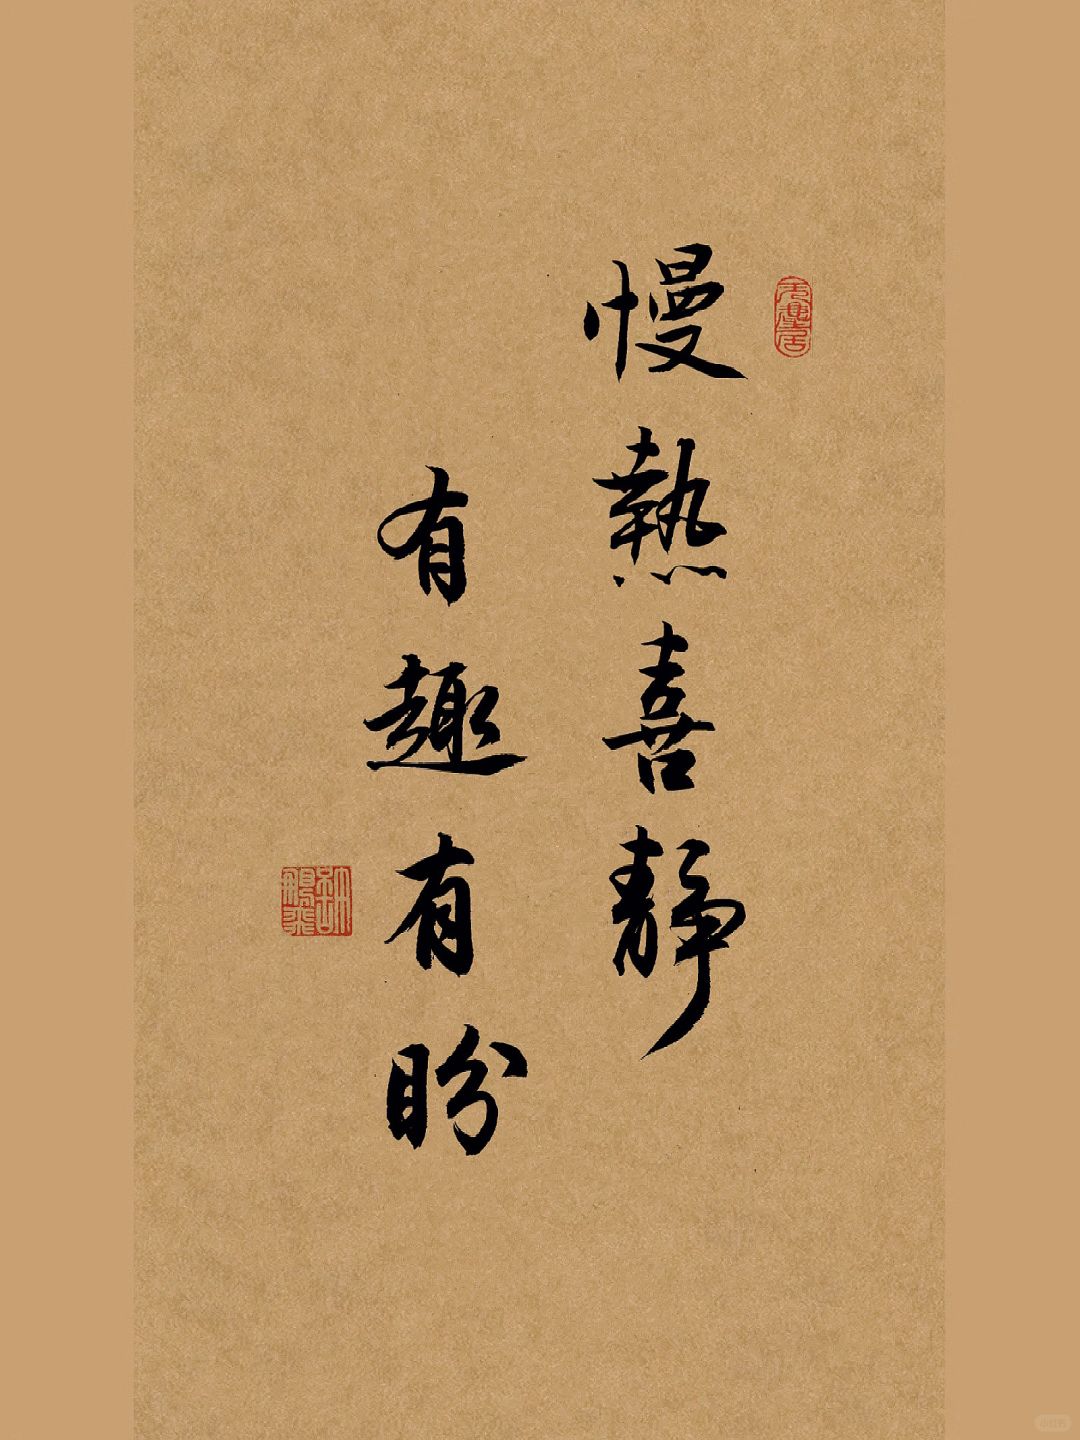 慢熱喜靜
有趣有盼